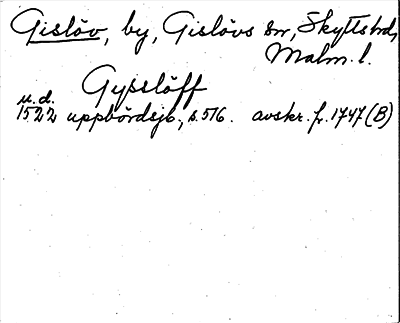 Gislöv, by, Gislövs sn, Skytts hd,
Malm. l.
Gysslöff
u.d.
1522 uppbördsjb., s. 516. avskr. fr. 1747 (B)